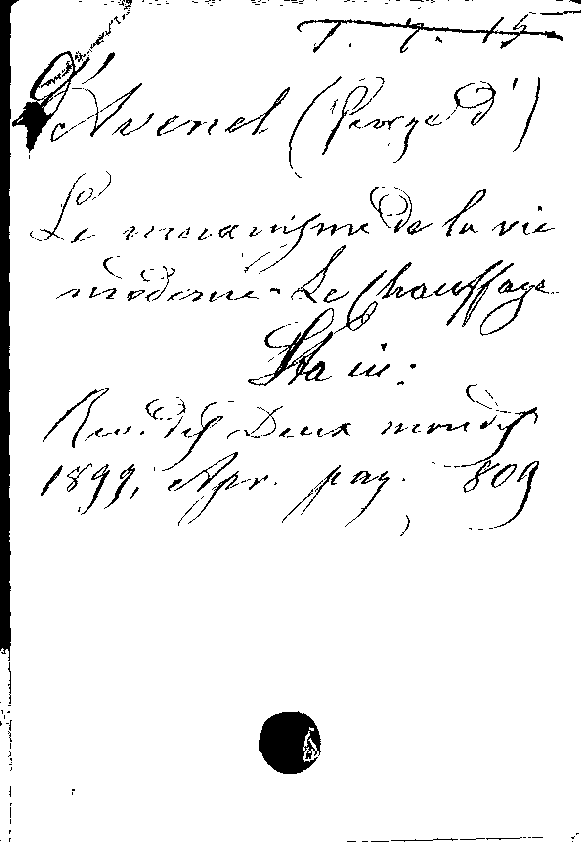 T. 7. 15
d'Avenel (George d')
Le mecanisme de la vie
moderne - Le Chauffage
Sta in:
Rev. des Deux mondes
1899, Apr. pag. 809